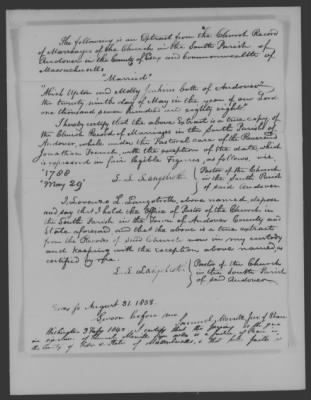 The following is an Extract from the Church Record
of Marriages of the Church in the South Parish of
Andover in the County of Essex and Commonwealth of
Massachusetts
"Married"
Upton and Molly Jenkins both of Andover
the twenty ninth day of May in the year of our Lord
one thousand seven hundred and eighty eight"
I hereby certify that the above Extract is a true copy of
the Church Record of Marriages in the South Parish of
Andover, while under the Pastoral care of the Reverend
Jonathan French, with the exception of the date, which
is expressed in fair legible Figures, as follows, viz.
"1788
May 29"
Pastor of the Church
in the South Parish
of said Andover
I, L. Langstroth, above named, depose
and say that I hold the Office of Pastor of the Church in
the South Parish in the Town of Andover County and
State aforesaid and that the above is a true extract
from the Records of said Church now in my custody
and keeping with the exception above named,
certified by me.
Pastor of the Church
in the South Parish
of said Andover
Essex ss August 31. 1838.
Sworn before me
Samuel Merrill, Jus. of Peace
Washington 3 July 1840, I certify that the
the County of Essex & State of Massachusetts, & that